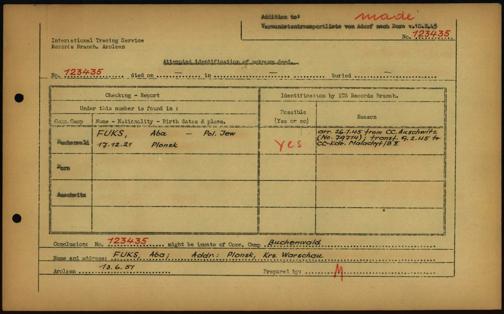 Addition to: made
Verwundetentransportliste von Adorf nach Dora v.18.2.45
No. 123435
International Tracing Service
Records Branch, Arolsen
Attempted identification of unknown dead.
No. 123435 died on — in — buried —
Checking - Report
Identification by ITS Records Branch.
Under this number is found in :
Possible (Yes or no)
Reason
Conc. Camp
Name - Nationality - Birth dates & place.
Buchenwald
FUKS, Aba — Pol. Jew
17.12.21 Plonsk
Yes
arr. 26.1.45 from CC. Auschwitz
(No. 79714); transf. 6.2.45 to
CC-Kdo. Malachyt/B II
Dora
Auschwitz
Conclusion: No. 123435 might be inmate of Conc. Camp Buchenwald
Name and address: FUKS, Aba; Addr: Plonsk, Krs. Warschau
Arolsen 13.6.51 Prepared by: M